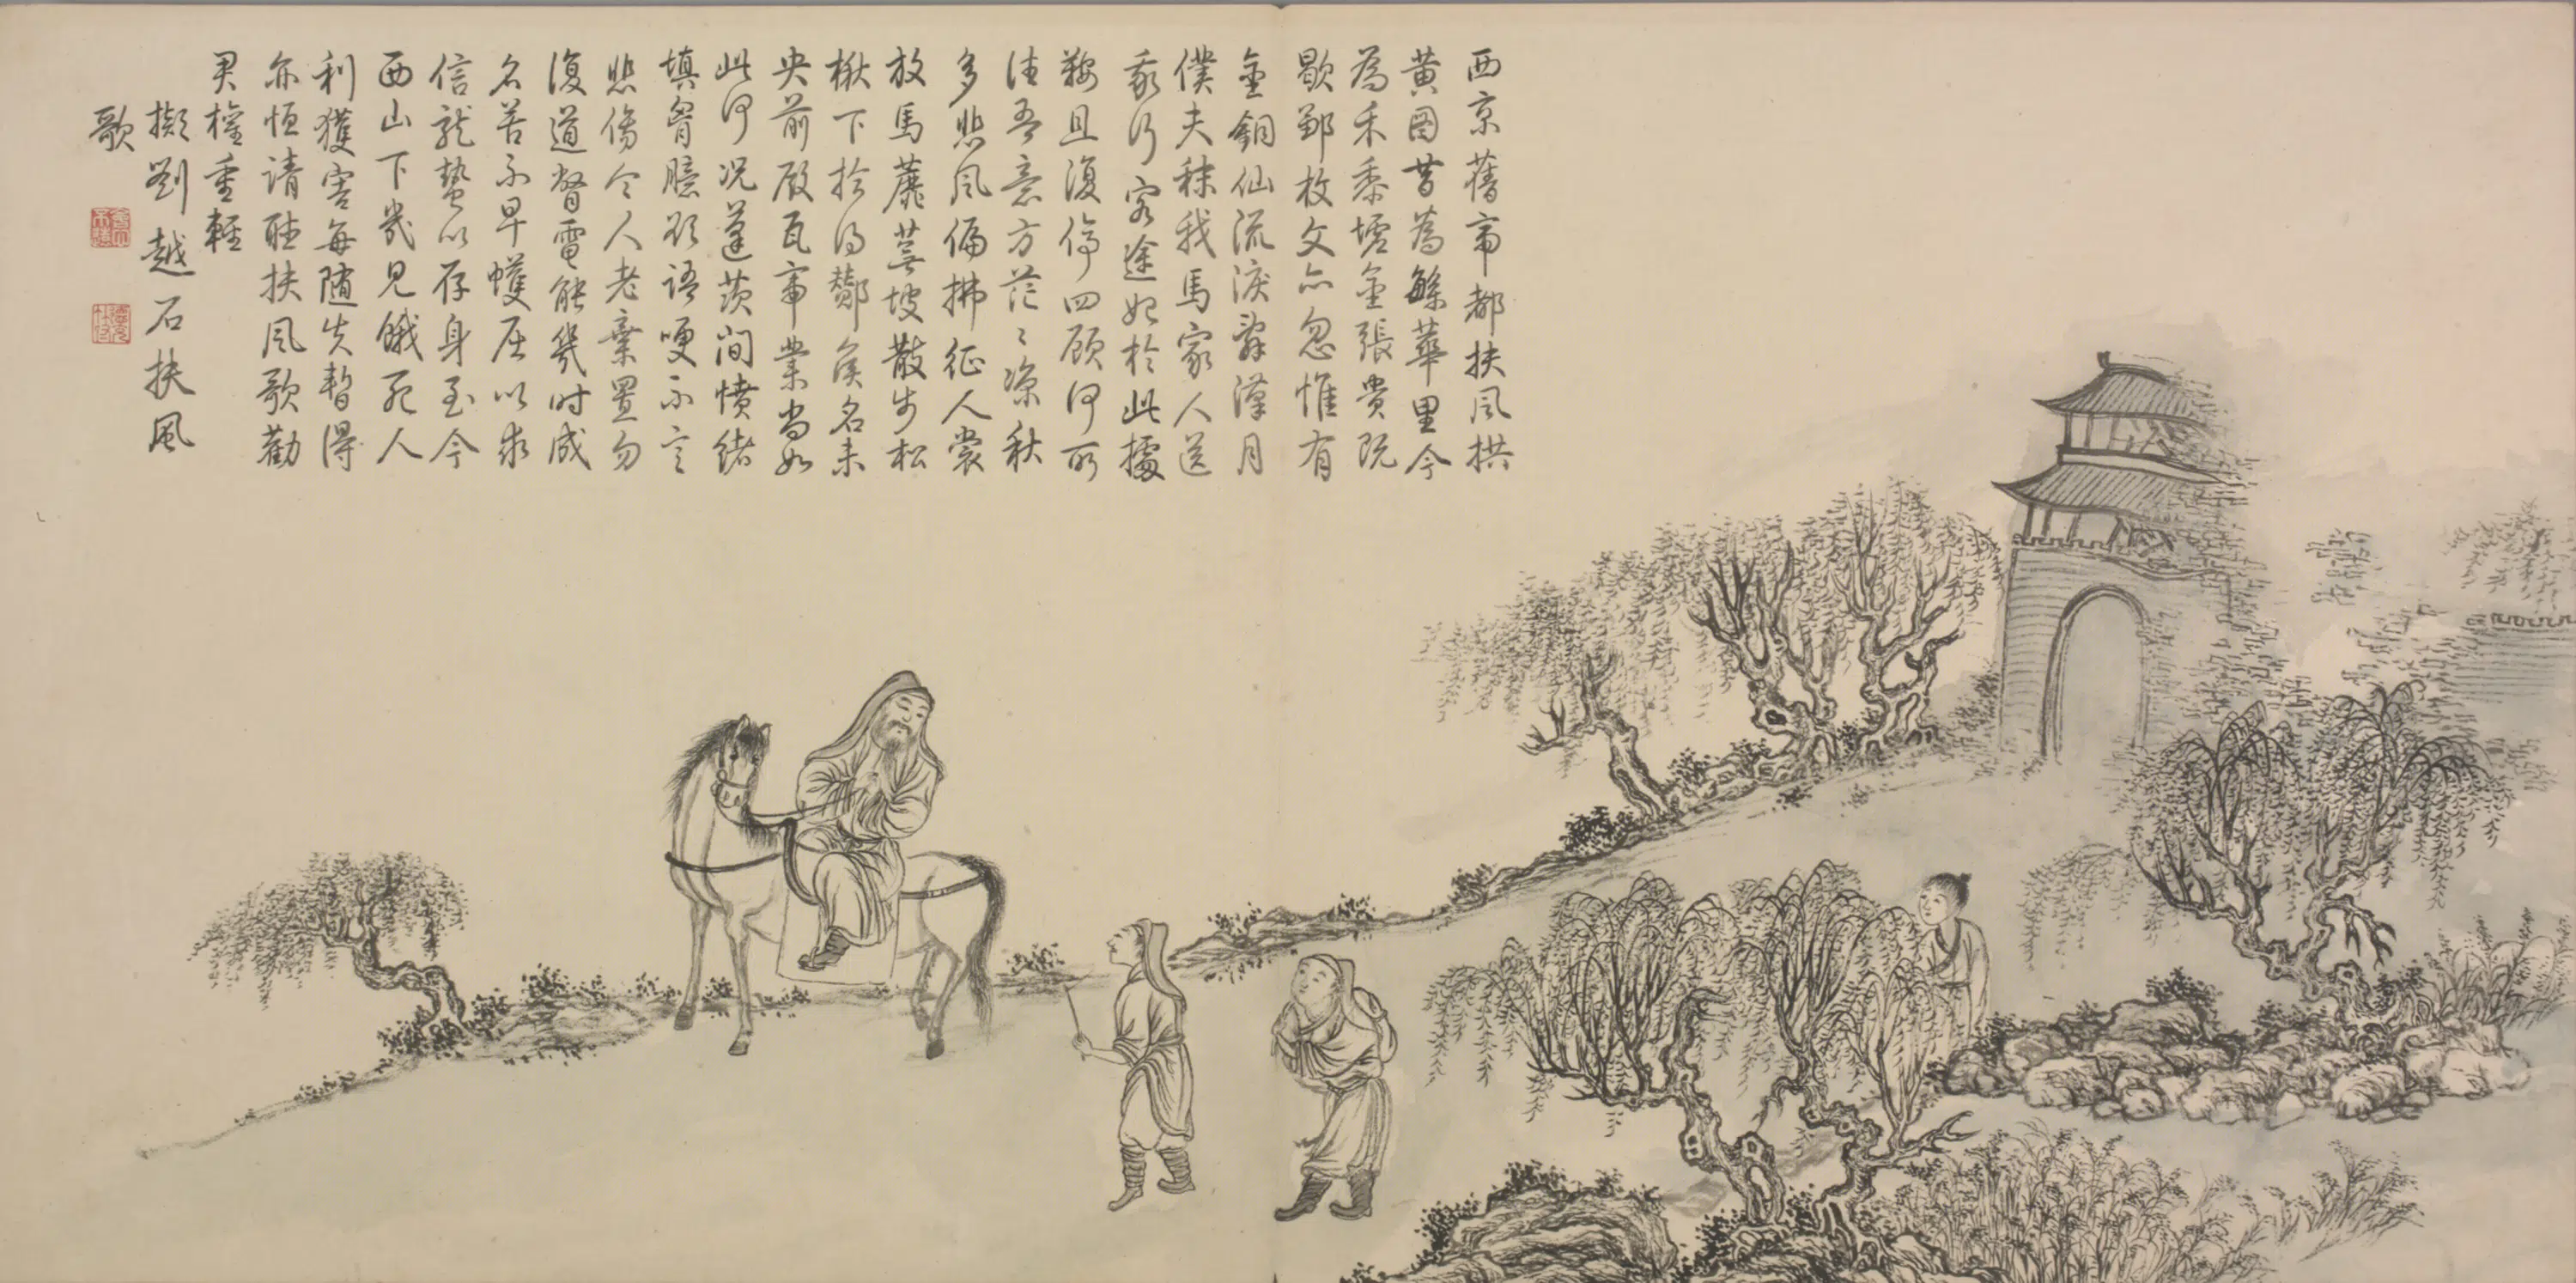 西京舊帝都扶風拱
黃圖昔為繇華里今
為禾黍墟金張貴既
歇鄒枚文亦忽惟有
金銅仙流淚辭漢月
僕夫秣我馬家人送
我行客途如於此據
鞍且復停四顧何所
往吾意方茫〻凉秋
多悲風偏拂征人裳
放馬蘼蕪坡散步松
楸下於何酇侯名未
央前殿瓦帝業尚如
此何況蓬茨間憤緒
填胷臆欲語哽不言
悲傷令人老棄置勿
復道瞀電能幾时成
名苦不早蠖屈以求
信龍蟄以存身至今
西山下幾見餓死人
利獲害每随失暫得
亦恒請聽扶風歌勸
君權重輕
擬劉越石扶風
歌